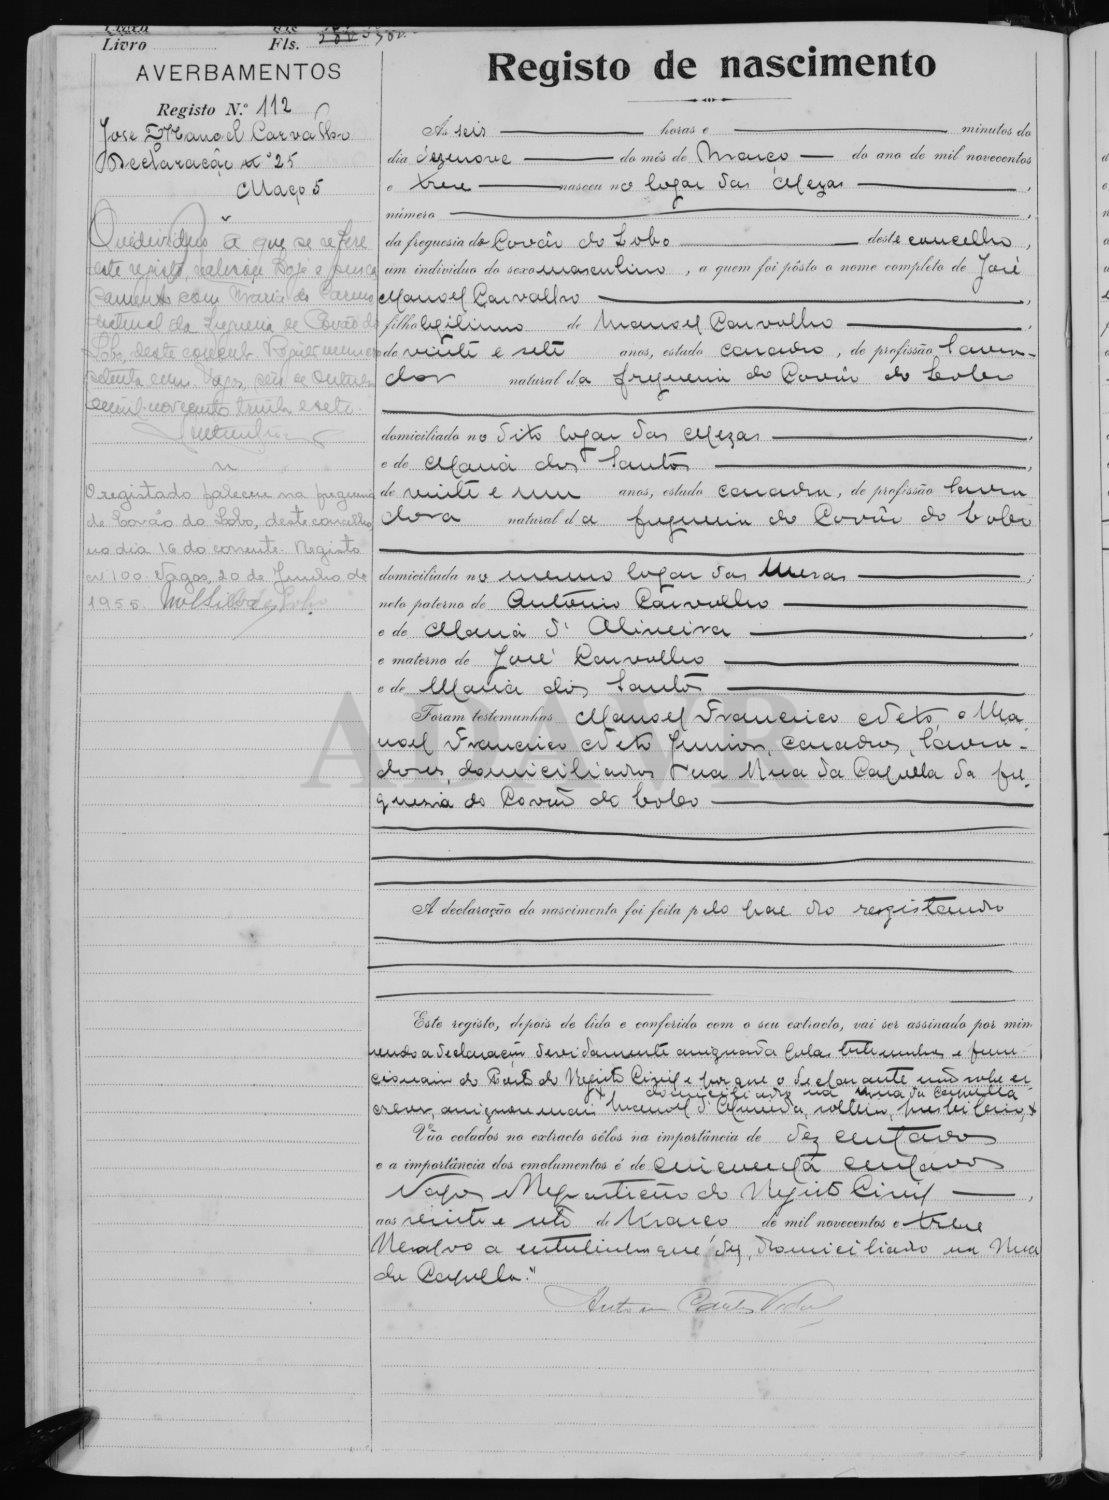 Livro Fls.
AVERBAMENTOS
Registo N.º 112
José Manoel Carvalho
Declaração nº 25
Maço 5
O individuo a que se refere
este registo realisou hoje o seu ca
samento com Maria do Carmo
natural da freguesia de Covão do
Lobo, deste concelho. Registo numero
setenta e um. Vagos, seis de outubro
de mil novecentos trinta e sete.
O registado faleceu na freguesia
de Covão do Lobo, deste concelho
no dia 16 do corrente. Registo
nº 100. Vagos, 20 de Junho de
1955.
Registo de nascimento
Ás seis horas e minutos do
dia dezenove do mês de Março do ano de mil novecentos
e treze nasceu no logar das Mezas,
número ,
da freguesia do Covão do Lobo deste concelho,
um individuo do sexo masculino, a quem foi pôsto o nome completo de José
Manoel Carvalho ,
filho legitimo de Manoel Carvalho ,
de vinte e sete anos, estado casado, de profissão lavra-
dor natural da freguesia do Covão do Lobo
domiciliado no dito logar das Mezas ,
e de Maria dos Santos ,
de vinte e um anos, estado casada, de profissão lavra
dora natural da freguesia do Covão do Lobo
domiciliada no mesmo logar das Mezas ;
neto paterno de António Carvalho
e de Maria d'Oliveira ,
e materno de José Carvalho
e de Maria dos Santos
Foram testemunhas Manoel Francisco Neto, e Ma
noel Francisco Neto Junior, casados, lavra-
dores, domiciliados na Rua da Capella da fre-
guesia do Covão do Lobo
ADAVR
A declaração do nascimento foi feita pelo pae do registando
Este registo, depois de lido e conferido com o seu extracto, vai ser assinado por mim
sendo a declaração devidamente assignada pelas testemunhas e func-
cionario do Posto do Registo Civil e porque o declarante não sabe es-
x domiciliado na Rua da Capella
crever, assignou mais Manoel d'Almeida, solteiro, presbitero, x
Vão colados no extracto sêlos na importância de dez centavos
e a importância dos emolumentos é de cincoenta centavos
Vagos Repartição do Registo Civil ,
aos vinte e sete de Março de mil novecentos e treze
Resalvo a entrelinha que diz, domiciliado na Rua
da Capella."
Antonio Carlos Vidal